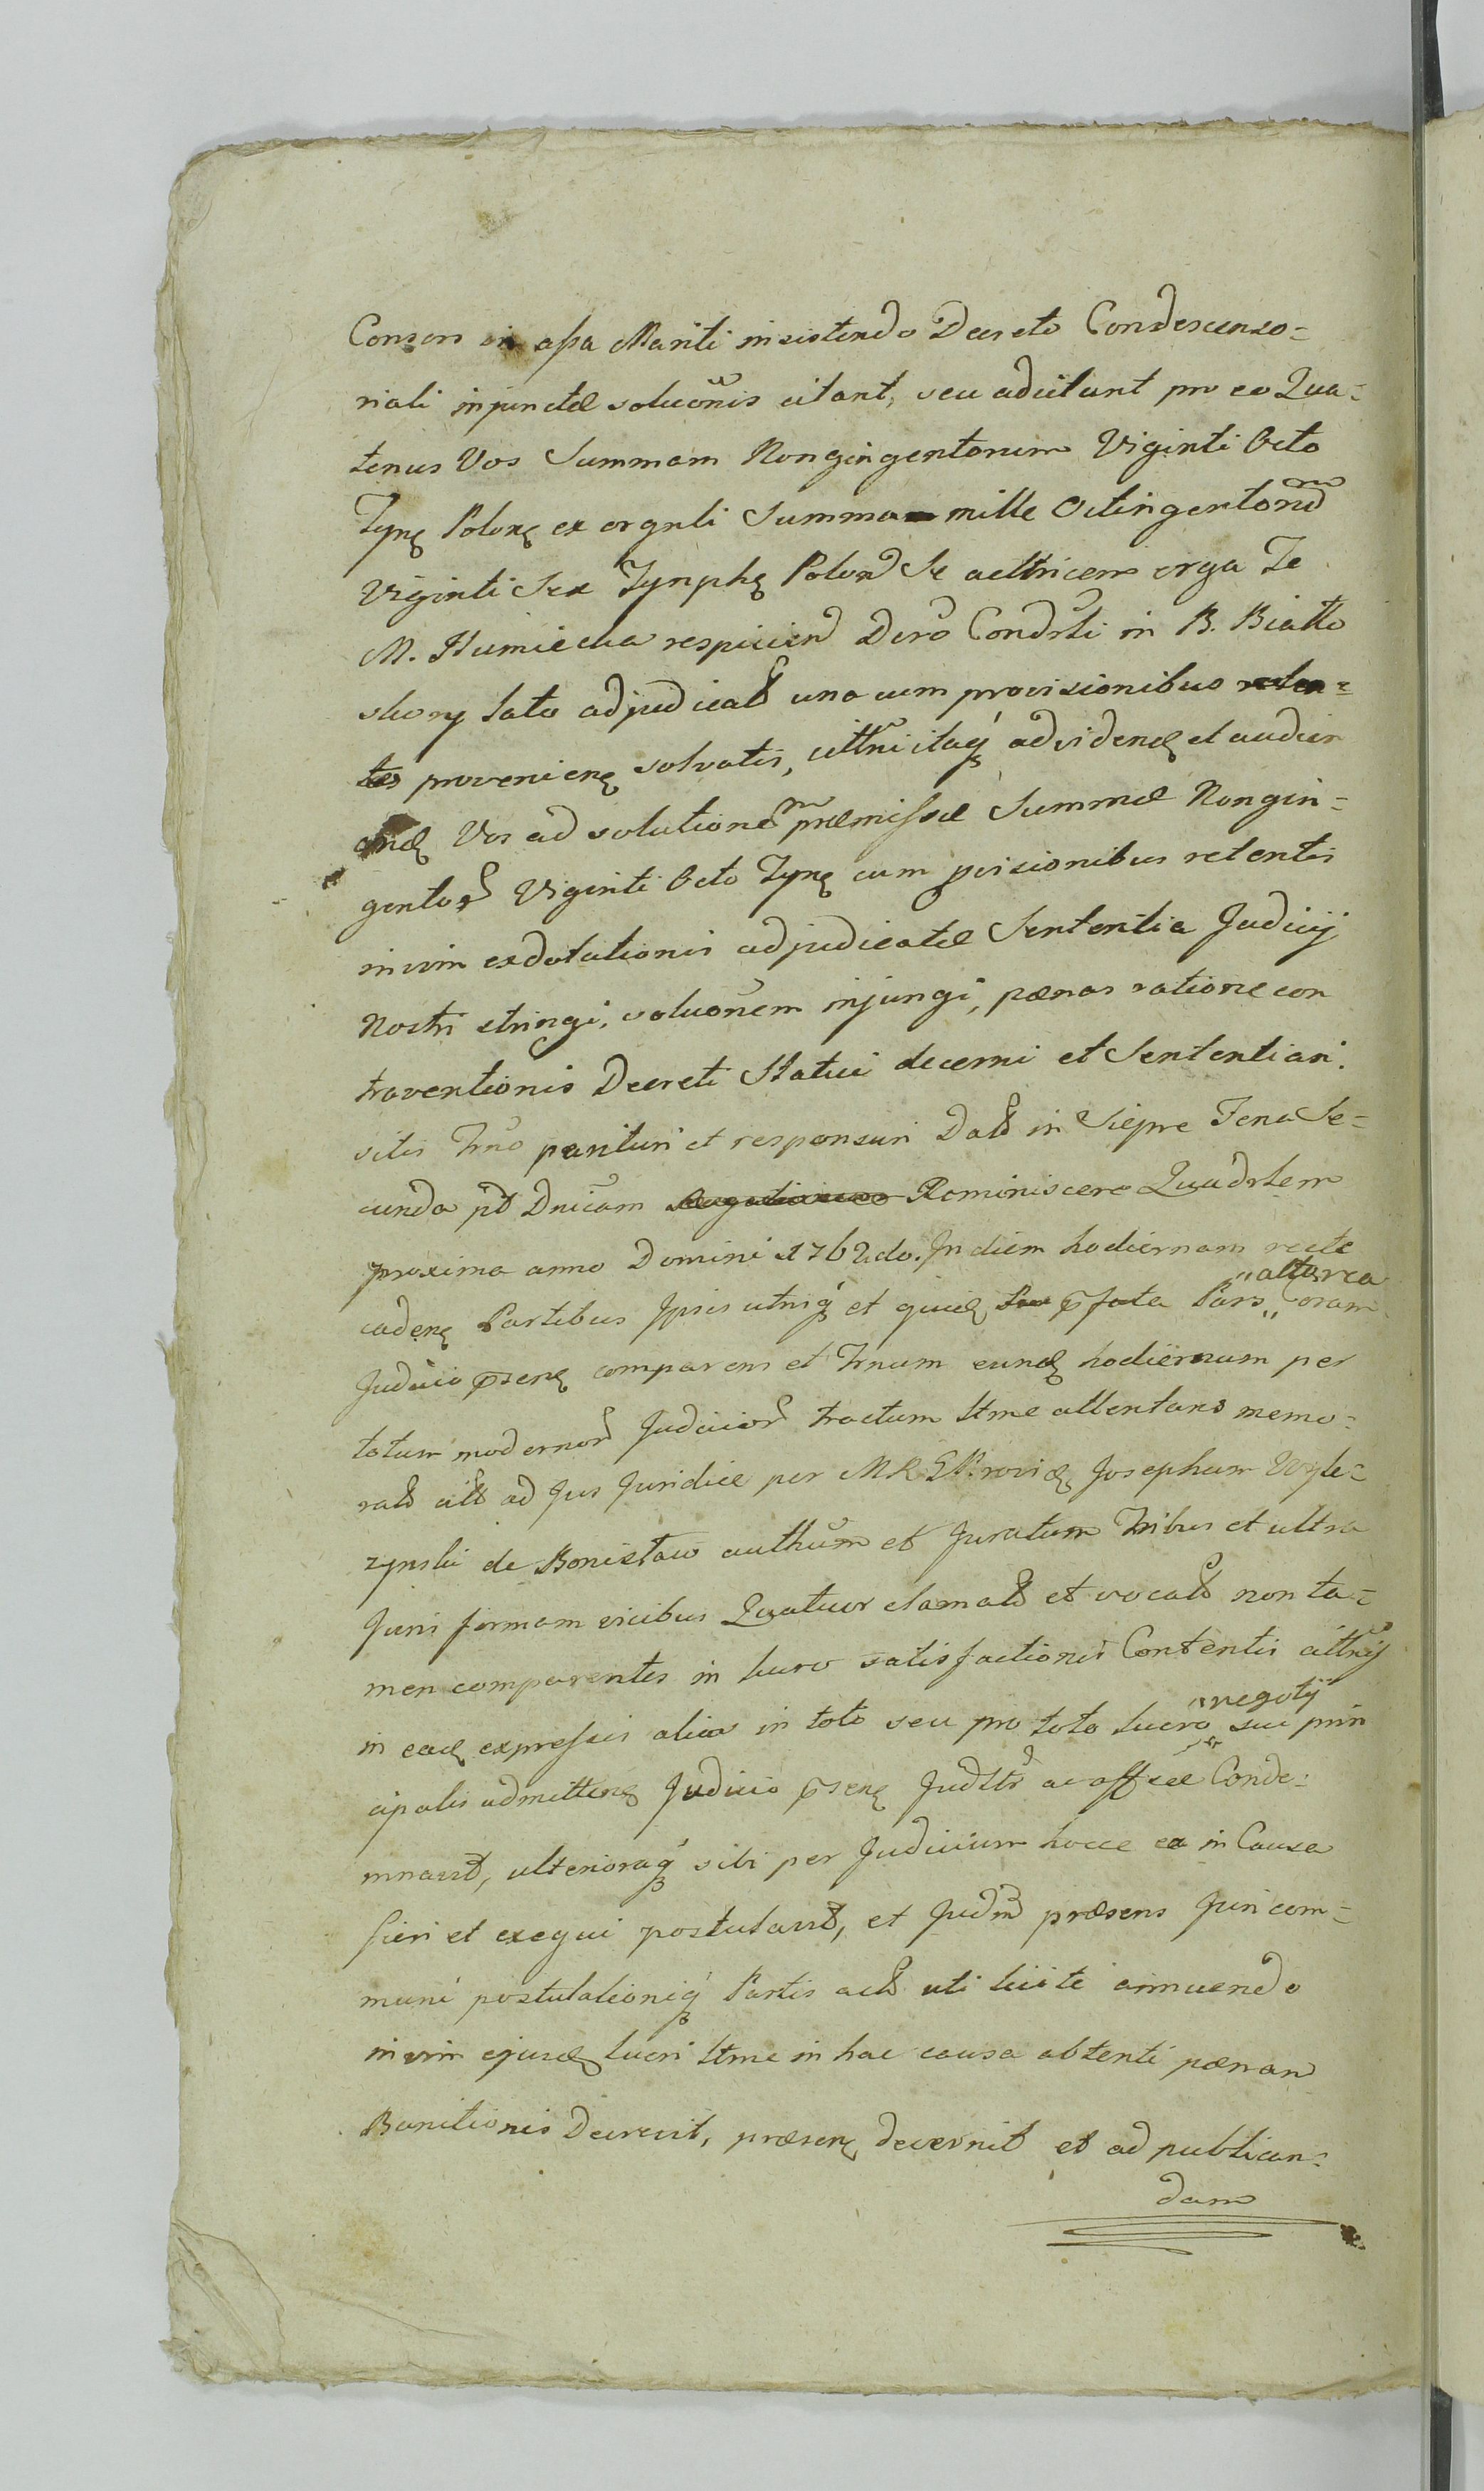 Consors in assa Mariti insistendo Decreto Condescenso=
riali injunctæ solucõnis citant, seu adcitant pro eo Qua=
tenus Vos Summam Nongingentorum Viginti Octo
Tynę Polonę ex orgnli Summa mille Octingentorũ
Viginti Sex Tymphę Polonę Se actricem erga Te
M. Humiecka respicien Dcrõ Condrsli in B. Biallo
skory lato adjudicat una cum provisionibus reten=
tis provenienę solvatis, cittñi itaq ad videndę et audien
dnę Vos ad solutionem præmissæ Summæ Nongin=
gentor Viginti Octo Tynę cum pvisionibus retentis
in vim exdotationis adjudicatæ Sententia Judicij
Nostri stringi, solucõnem injungi, pœnas ratione con
traventionis Decreti Statui decerni et Sententiari.
sitis Trño parituri et responsuri Dat in Siepre Feria Se=
cunda pt Dnicam Reminiscere Quadrlem
proxima anno Domini 1762do. In diem hodiernam recte
cadenę Partibus Ipsis utriq et quidę pfata Pars „actorea Coram
Judicio psenę comparens et Trnum eundę hodiernum per
totum modernor Judicior tractum Ltme attentans memo=
rat citt ad Jus Juridice per MRGProvidę Josephum Wyle=
zynski de Bonistaw authum et Juratum Tribus et ultra
Juris formam vicibus Quatuor clamat et vocat non ta=
men comparentes in lucro satisfactionis Contentis cittñis
in eadę expressis alias in toto seu pro toto lucro „negotij sui prin
cipalis admittenę Judicio psenę Judltr ac assæ Conde=
mnavit, ulterioraq sibi per Judicium hocce ea in Causa
fieri et exequi postulavit, et Judm præsens Juri com=
muni postulationiq Partis act uti licite annuendo
in vim ejusdę lucri Ltme in hac causa obtenti pœnam
Banitionis Decrevit, præsenę decernit et ad publican=
dam